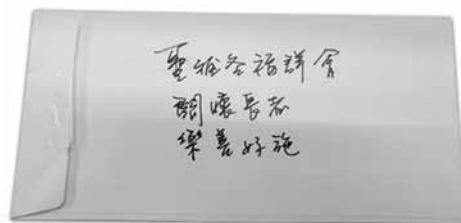 聖雅各福群會
關懷長者
樂善好施